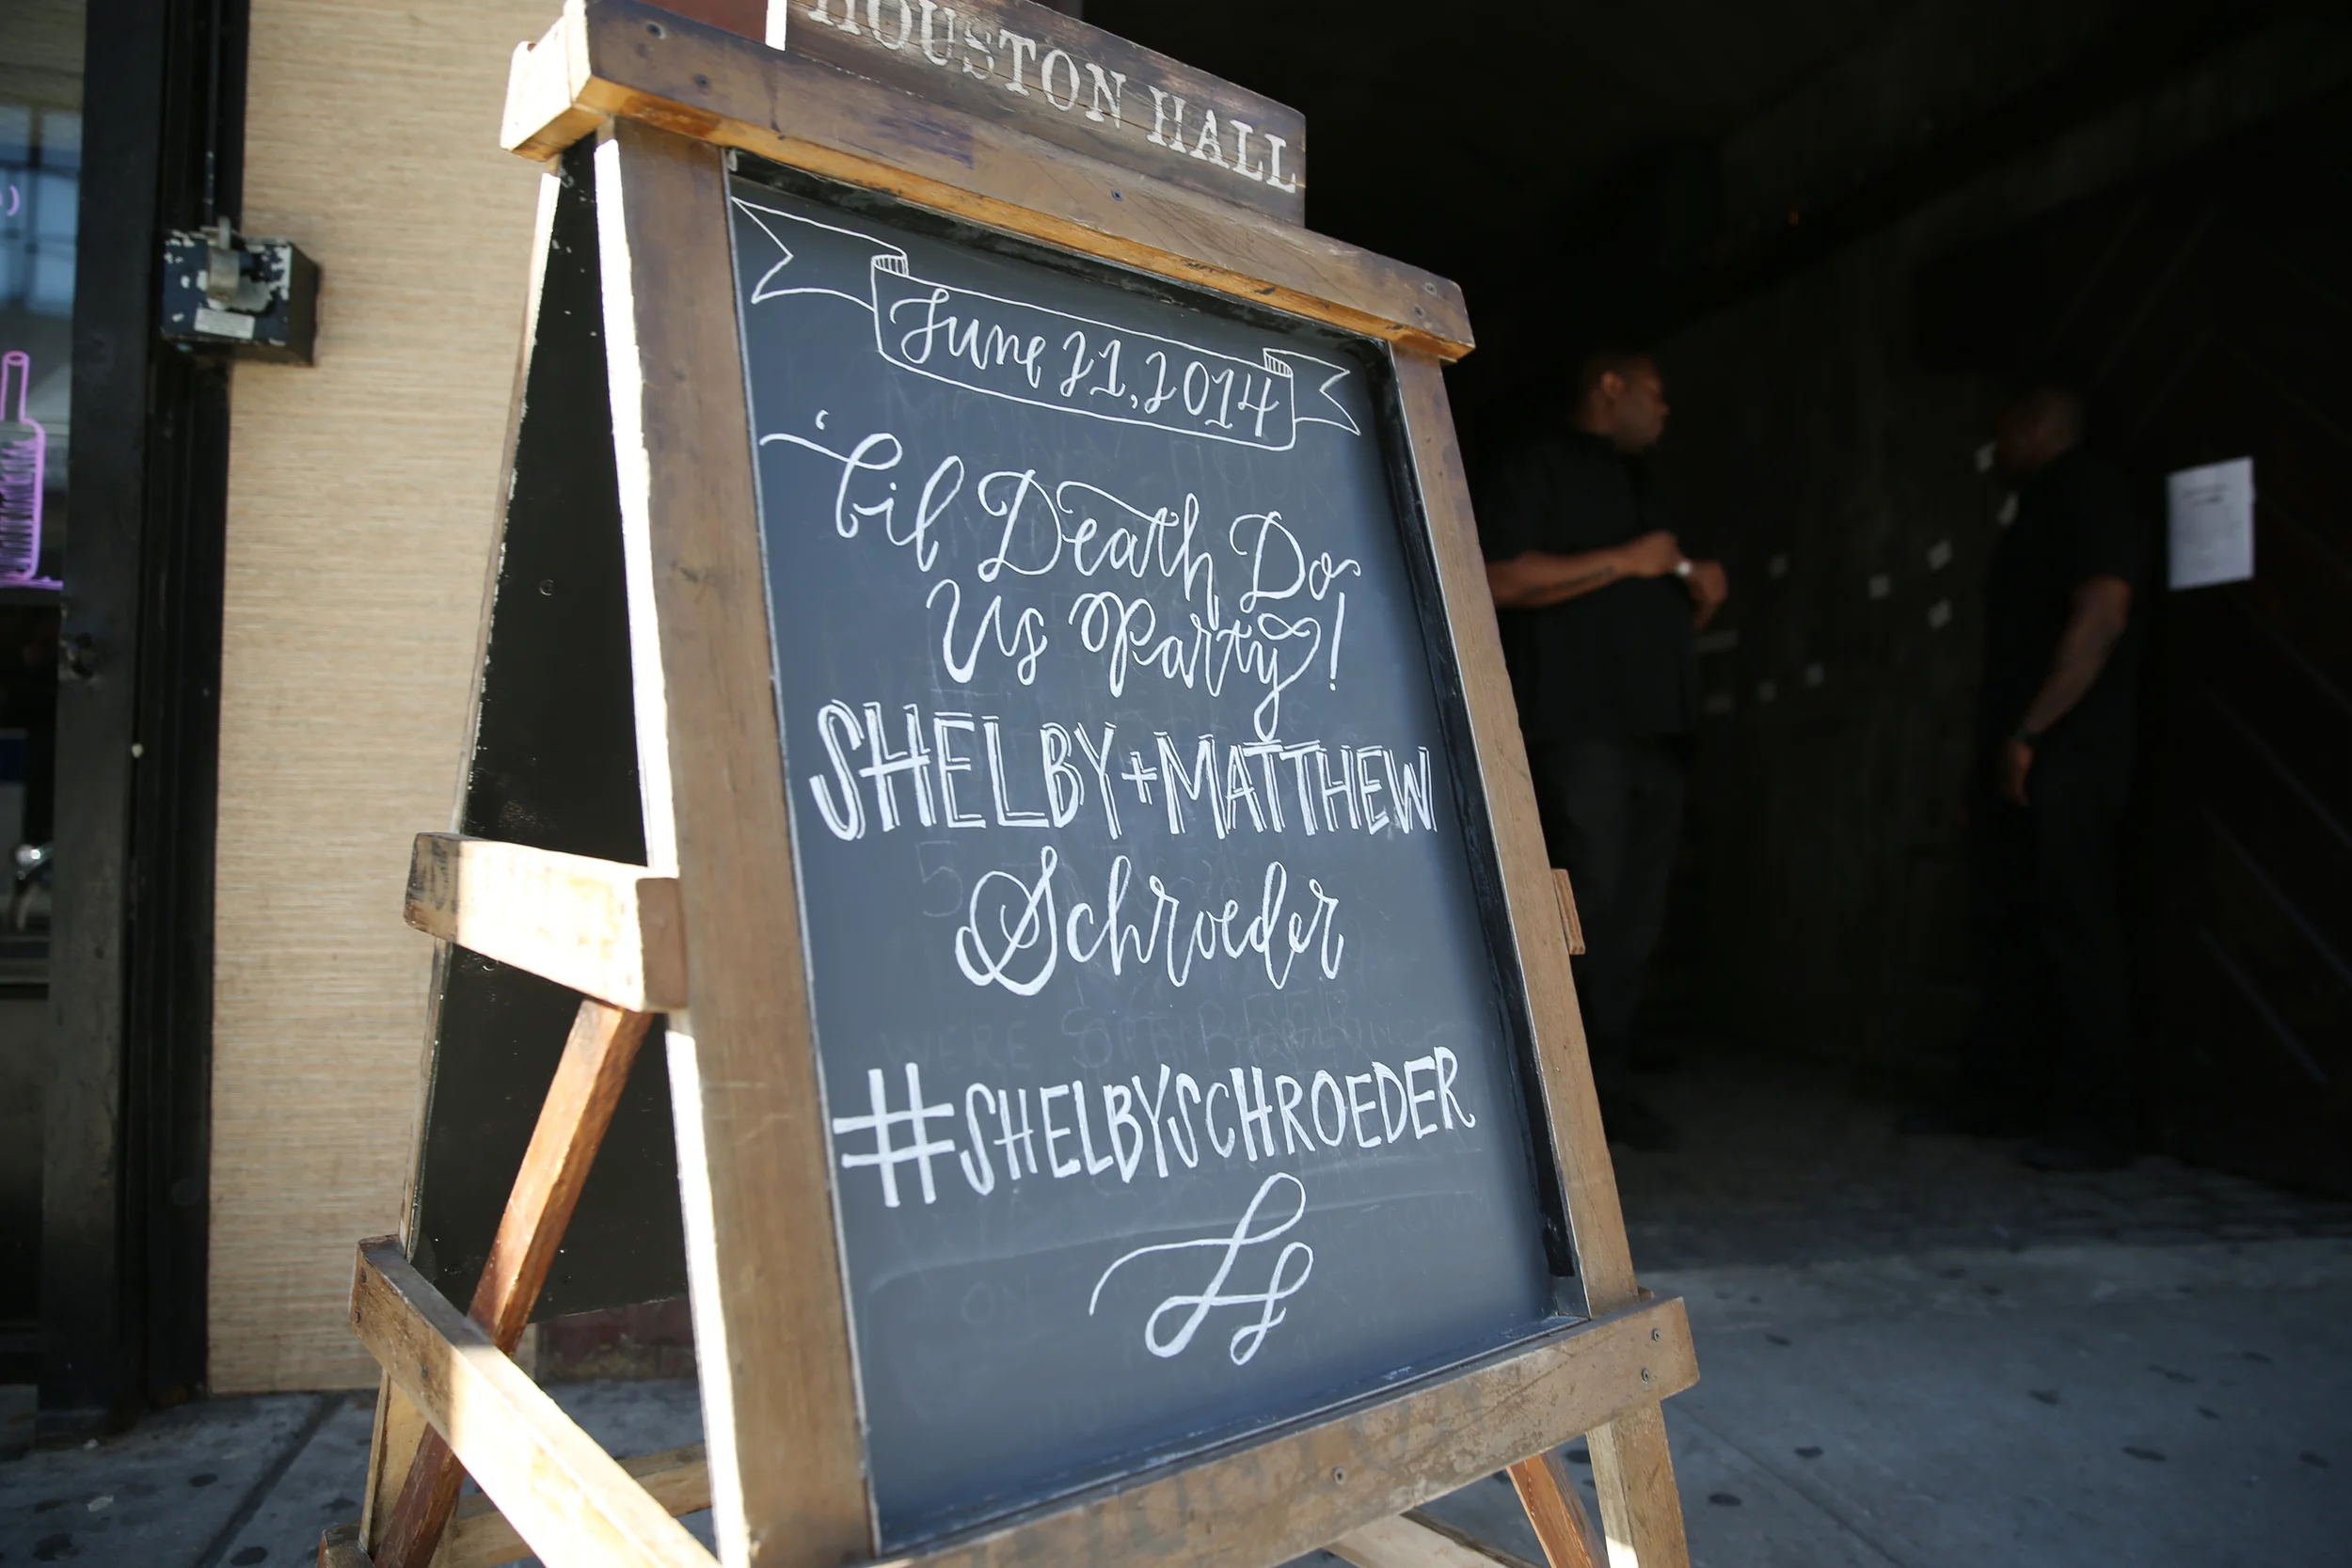 HOUSTON HALL
June 21, 2014
'til Death Do
Us Party!
SHELBY+MATTHEW
Schroeder
#SHELBYSCHROEDER